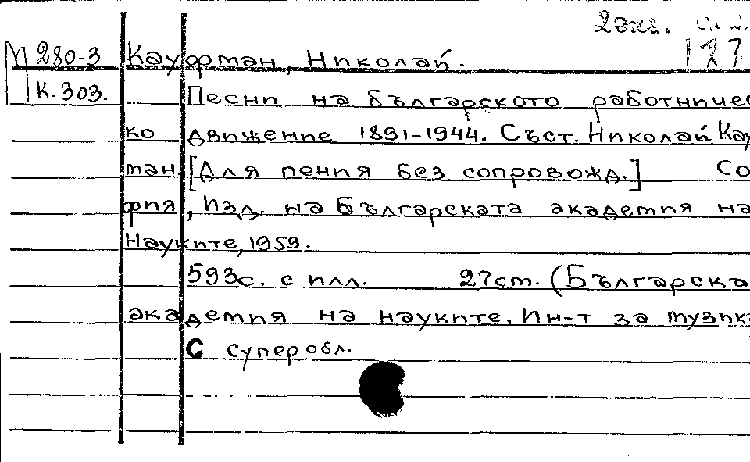 2 экз.
М 280-3 Кауфман, Николай.
К. 303. Песни на българското работничес
ко движение 1891-1944. Съст. Николай Кау
ман. [Для пения без сопровожд.] Со
фия, Изд. на Българската академия на
Науките, 1959.
593с. с илл. 27см. (Българска
академия на науките. Ин-т за музик
С суперобл.